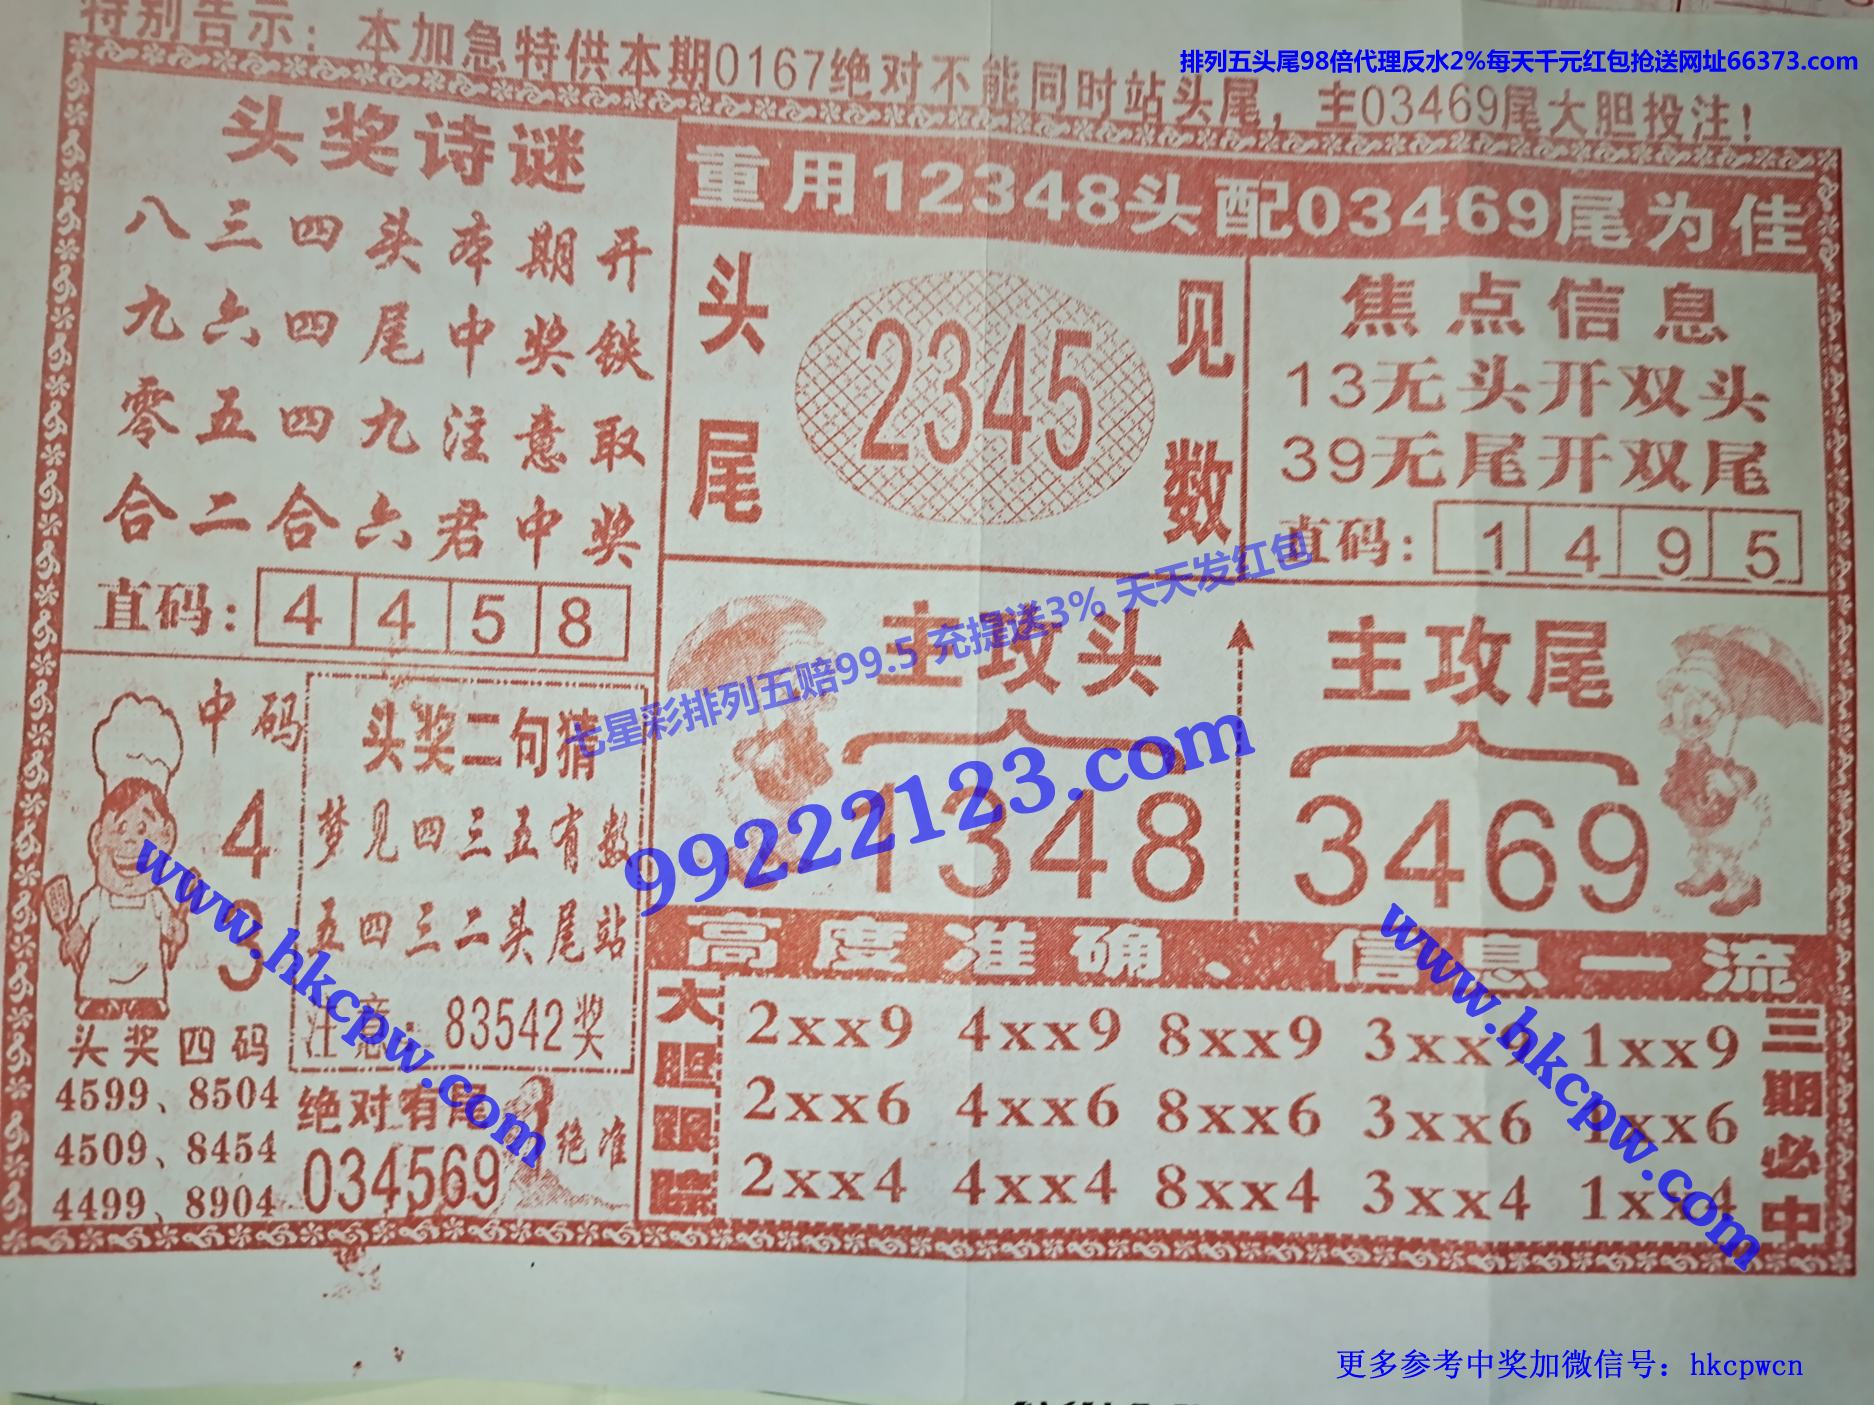 特别告示：本加急特供本期0167绝对不能同时站头尾，主03469尾大胆投注！
排列五头尾98倍代理反水2%每天千元红包抢送网址66373.com
头奖诗谜
八三四头本期开
九六四尾中奖铁
零五四九注意取
合二合六君中奖
直码：4 4 5 8
重用12348头配03469尾为佳
头尾
2345
见数
焦点信息
13无头开双头
39无尾开双尾
直码：1 4 9 5
七星彩排列五赔99.5 充提送3% 天天发红包
99222123.com
主攻头
1348
主攻尾
3469
中码
4
3
头奖二句猜
梦见四三五有数
五四三二头尾站
注意：83542奖
www.hkcpw.com
www.hkcpw.com
头奖四码
4599、8504
4509、8454
4499、8904
绝对有尾
034569
绝准
高度准确、信息一流
大胆跟踪
2xx9 4xx9 8xx9 3xx9 1xx9
2xx6 4xx6 8xx6 3xx6 1xx6
2xx4 4xx4 8xx4 3xx4 1xx4
三期必中
更多参考中奖加微信号：hkcpwcn